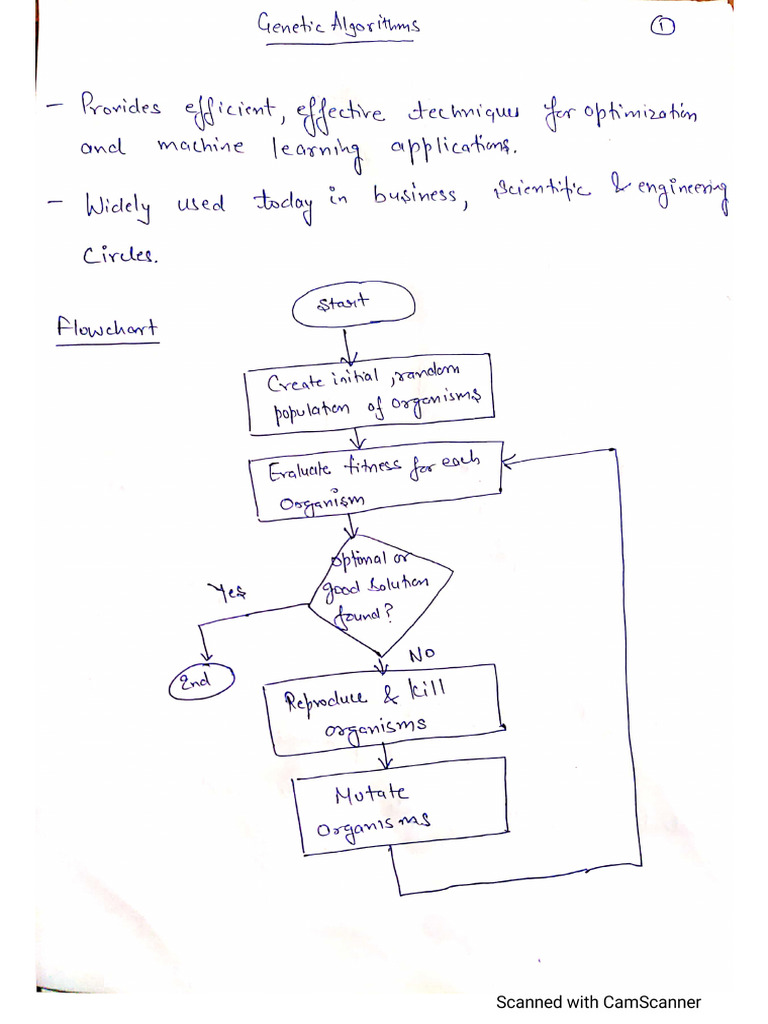 Genetic Algorithms
1
- Provides efficient, effective techniques for optimization
and machine learning applications.
- Widely used today in business, scientific & engineering
Circles.
Flowchart
Start
Create initial, random
population of organisms
Evaluate fitness for each
Organism
optimal or
good solution
found?
Yes
End
No
Reproduce & kill
organisms
Mutate
Organisms
Scanned with CamScanner